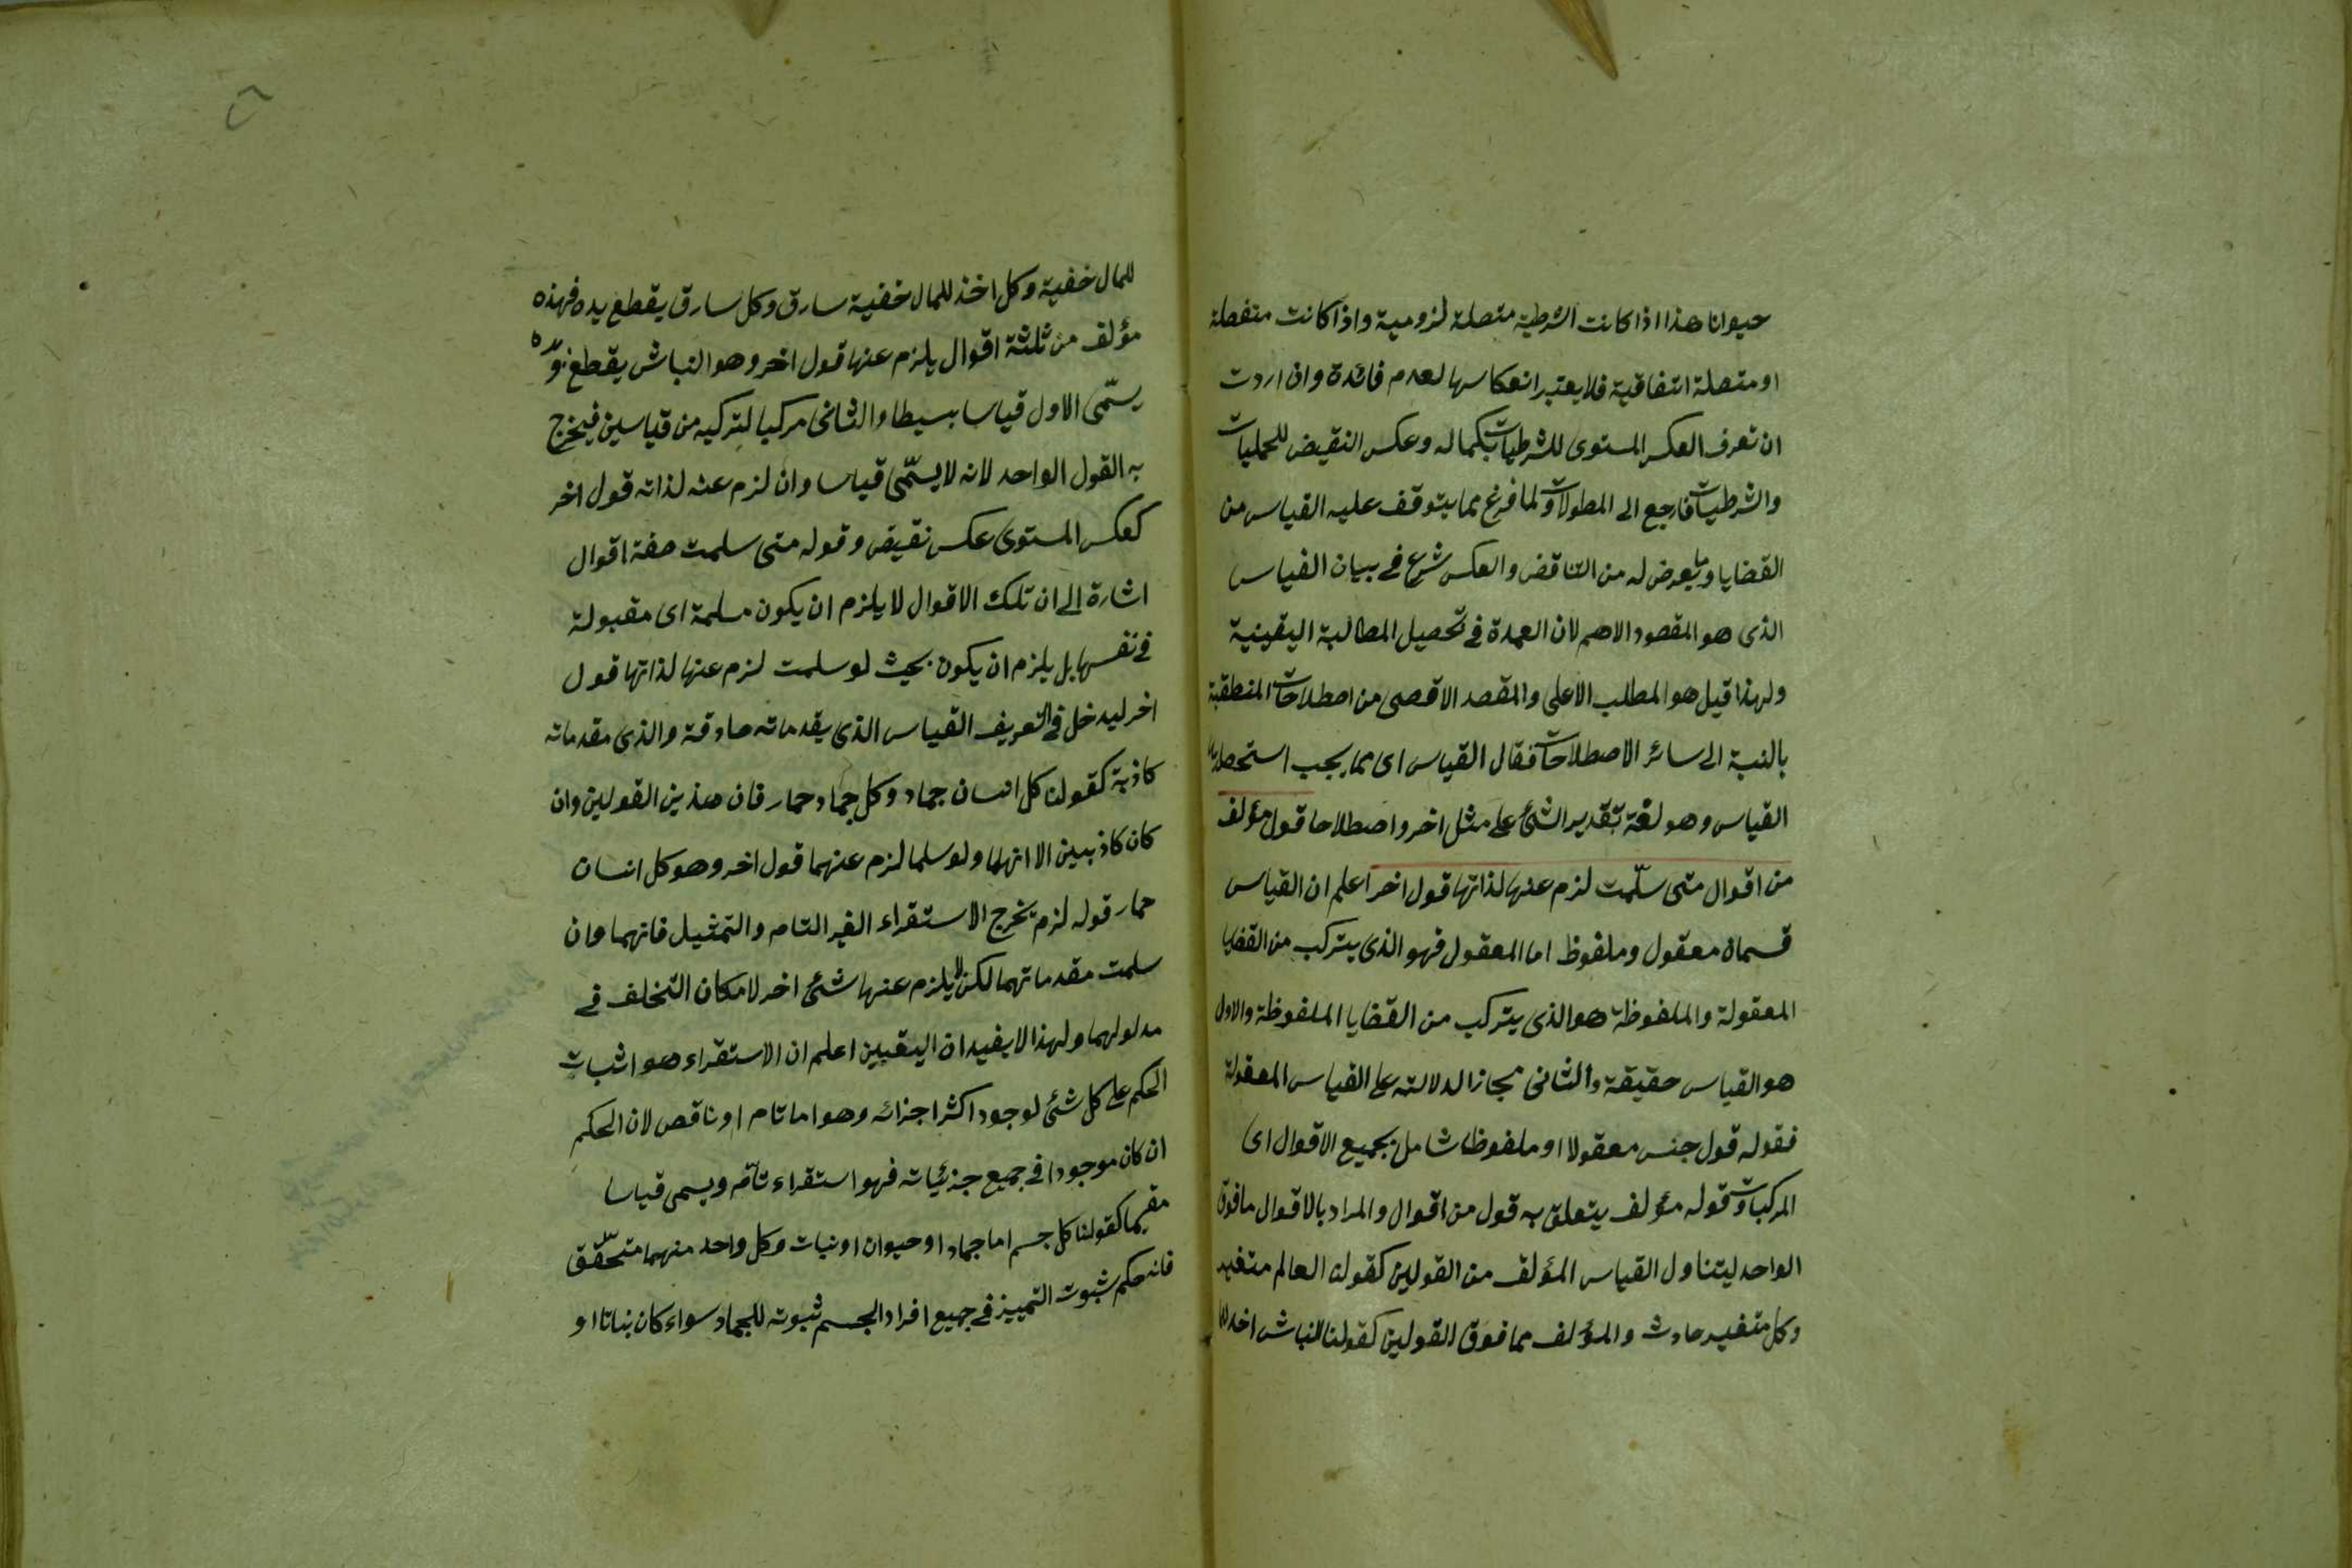 حيوانا هذا اذا كانت الشرطية متصلة لزومية واذا كانت منفصلة
او متصلة اتفاقية فلا يعتبر انعكاسها لعدم فائدة وان اردت
ان تعرف العكس المستوى للشرطيات بكماله وعكس النقيض للحمليات
والشرطيات فارجع الى المطولات ولما فرغ مما يتوقف عليه القياس من
القضايا وما يعرض له من التناقض والعكس شرع فى بيان القياس
الذى هو المقصود الاهم لان العمدة فى تحصيل المطالبة اليقينية
ولهذا قيل هو المطلب الاعلى والمقصد الاقصى من اصطلاحات المنطقية
بالنسبة الى سائر الاصطلاحات فقال القياس اى مما يجب استحضاره
القياس وهو لغة تقدير الشئ على مثل اخر واصطلاحا قول مؤلف
من اقوال متى سلّمت لزم عنها لذاتها قول اخر اعلم ان القياس
قسمان معقول وملفوظ اما المعقول فهو الذى يتركب من القضايا
المعقولة والملفوظة هو الذى يتركب من القضايا الملفوظة والاول
هو القياس حقيقة والثانى مجازا لدلالته على القياس المعقولة
فقوله قول جنس معقولا او ملفوظا شامل بجميع الاقوال اى
المركبات وقوله مؤلف يتعلق به قول من اقوال والمراد بالاقوال مافوق
الواحد ليتناول القياس المؤلف من القولين كقولنا العالم متغير
وكل متغير حادث والمؤلف مما فوق القولين كقولنا النباش اخذ
للمال خفية وكل اخذ للمال خفية سارق وكل سارق يقطع يده فهذه
مؤلف من ثلثة اقوال يلزم عنها قول اخر وهو النباش يقطع يده و
يسمّى الاول قياسا بسيطا والثانى مركبا لتركبه من قياسين فيخرج
به القول الواحد لانه لا يسمّى قياسا وان لزم عنه لذاته قول اخر
كعكس المستوى عكس نقيض وقوله متى سلمت صفة اقوال
اشارة الى ان تلك الاقوال لا يلزم ان يكون مسلمة اى مقبولة
فى نفسها بل يلزم ان يكون بحيث لو سلمت لزم عنها لذاتها قول
اخر ليدخل فى التعريف القياس الذى يقدماته صادقة والذى مقدماته
كاذبة كقولنا كل انسان جماد وكل جماد حمار فان هذين القولين وان
كان كاذبين الا انهما ولو سلما لزم عنهما قول اخر وهو كل انسان
حمار قوله لزم يخرج الاستقراء الغير التام والتمثيل فانهما وان
سلمت مقدماتهما لكن لا يلزم عنها شئ اخر لامكان التخلف فى
مدلولهما ولهذا لا يفيدان اليقين اعلم ان الاستقراء هو اثبات
الحكم على كل شئ لوجود اكثر اجزائه وهو اما تام او ناقص لان الحكم
ان كان موجودا فى جميع جزئياته فهو استقراء تامّ ويسمى قياسا
مقسما كقولنا كل جسم اما جماد او حيوان او نبات وكل واحد منهما متحقّق
فانه حكم بثبوت التمييز فى جميع افراد الجسم ثبوته للجماد سواء كان نباتا او